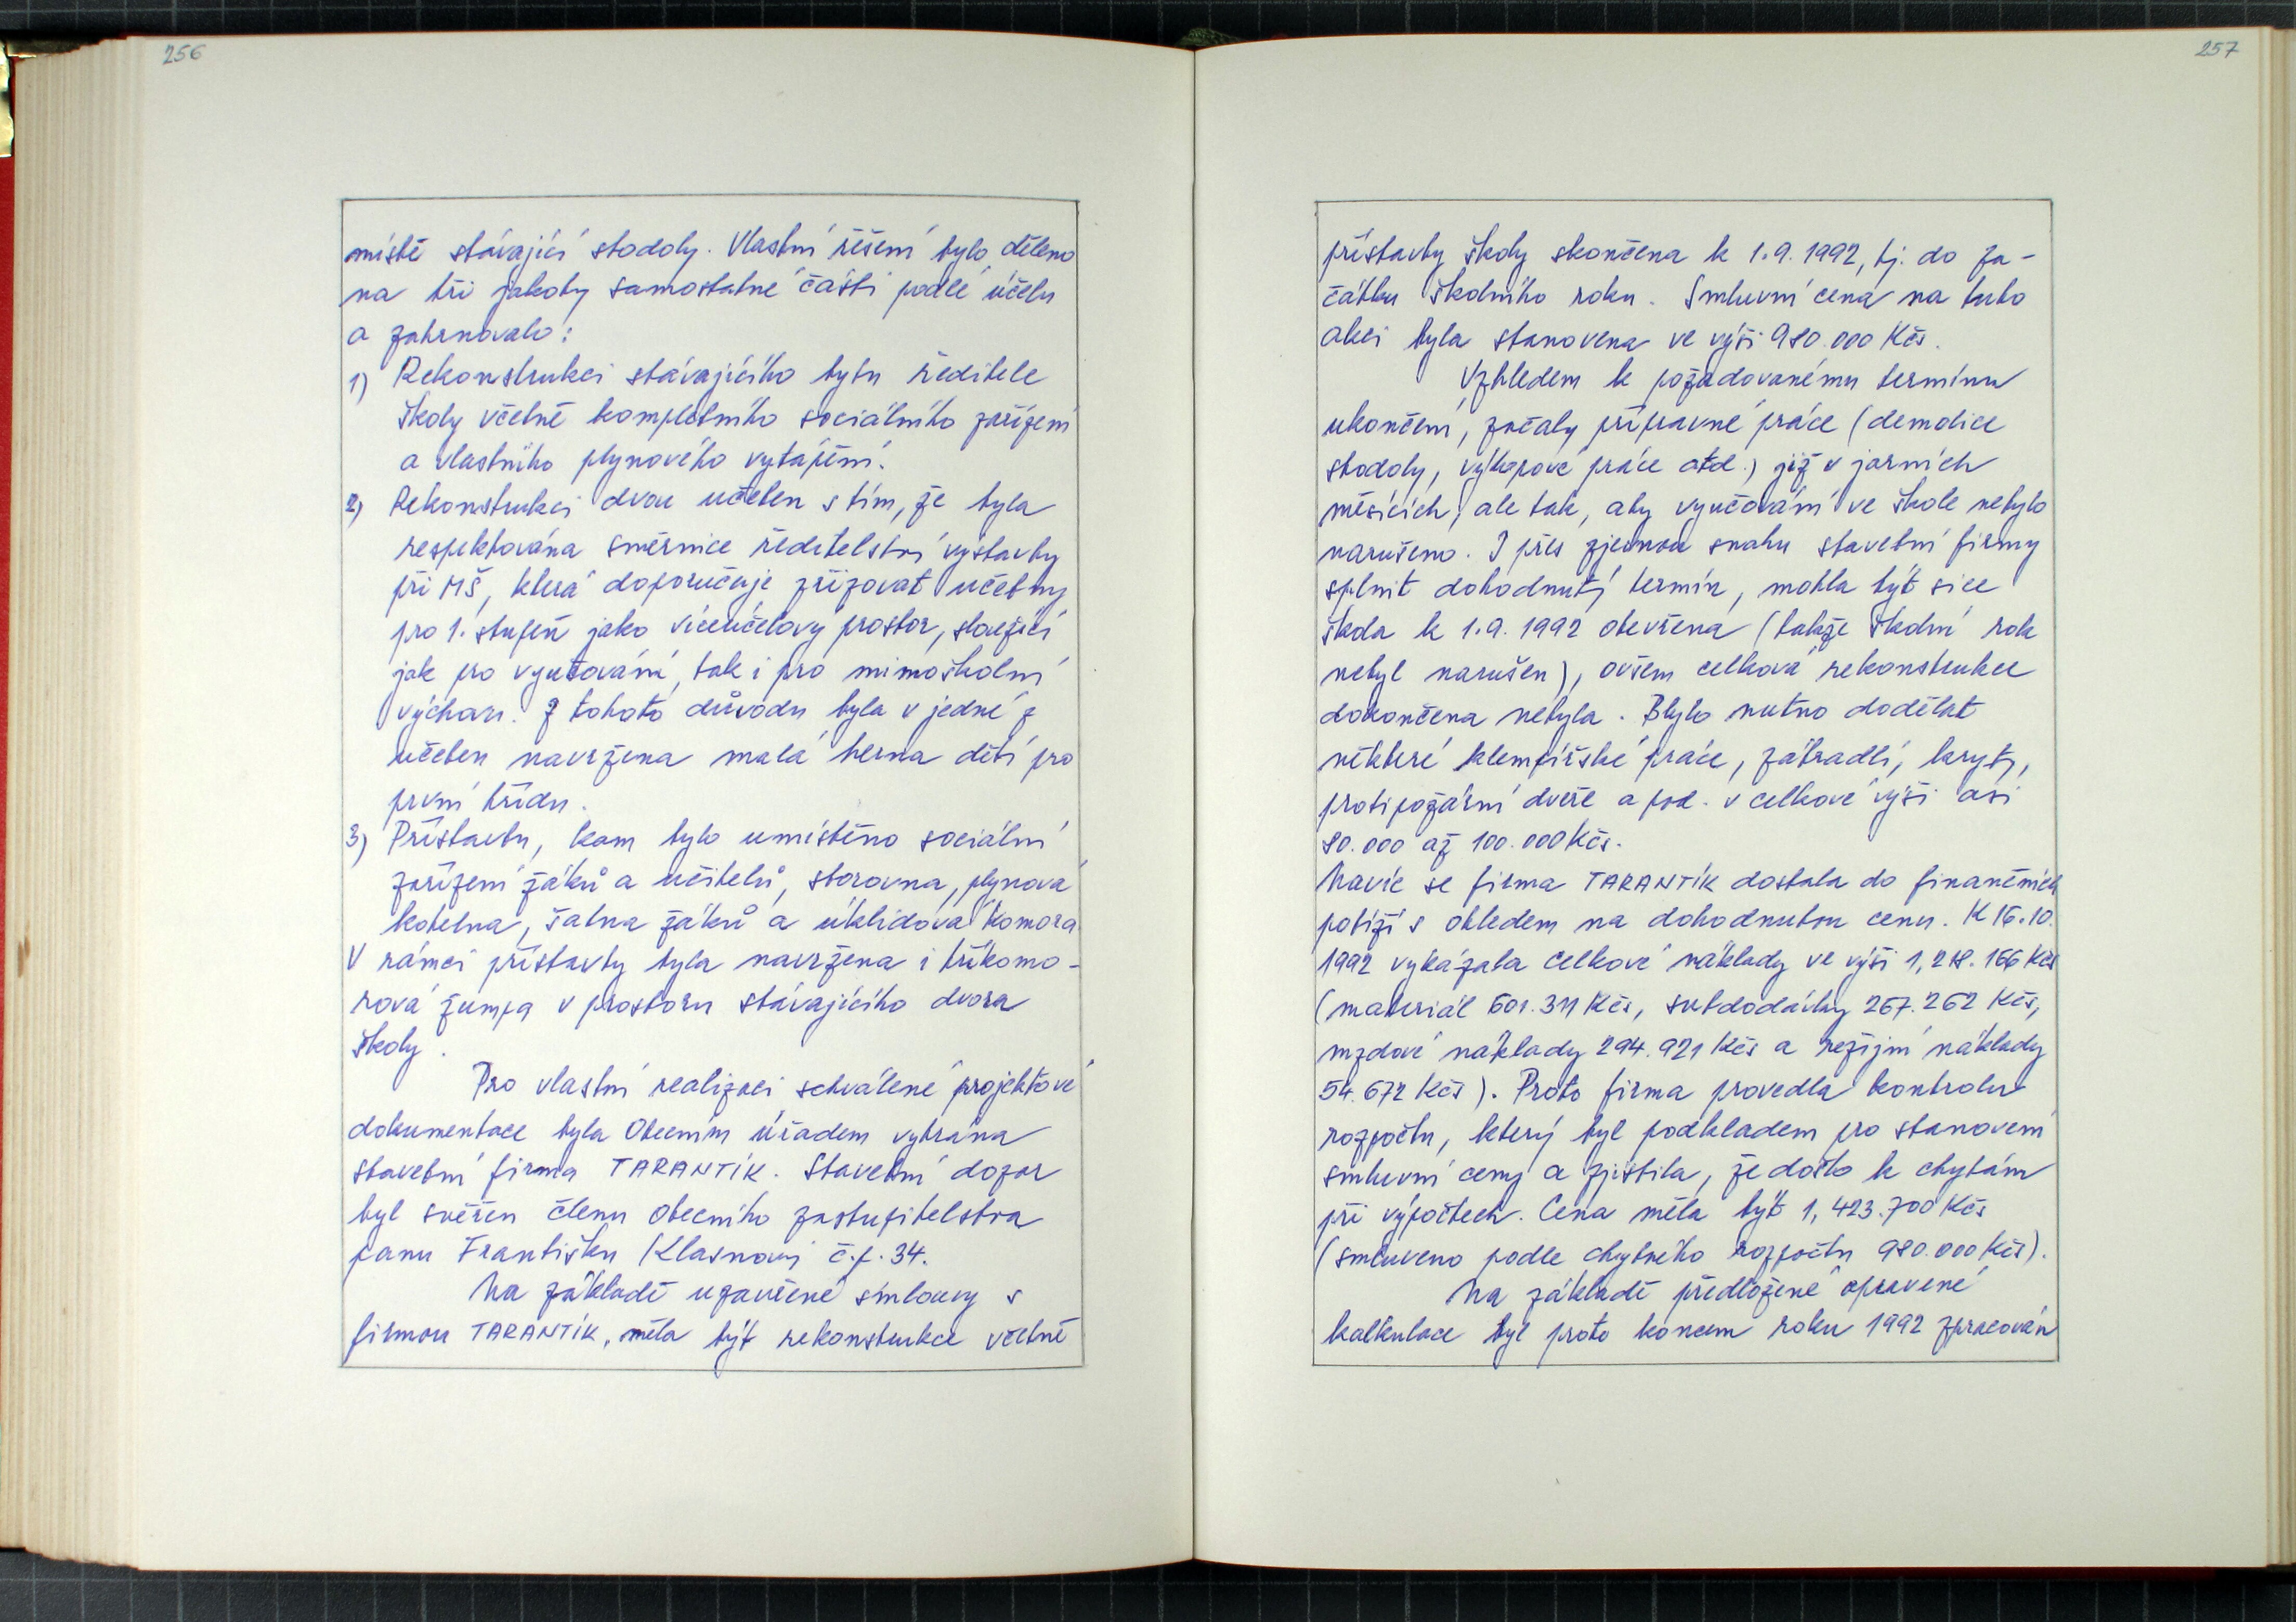 256
místě stávající stodoly. Vlastní řešení bylo děleno
na tři jakoby samostatné části podle účelu
a zahrnovalo:
1) Rekonstrukci stávajícího bytu ředitele
školy včetně kompletního sociálního zařízení
a vlastního plynového vytápění.
2) Rekonstrukci dvou učeben s tím, že byla
respektována směrnice ředitelství výstavby
při MŠ, která doporučuje zřizovat učebny
pro 1. stupeň jako víceúčelový prostor, sloužící
jak pro vyučování, tak i pro mimoškolní
výchovu. Z tohoto důvodu byla v jedné z
učeben navržena malá herna dětí pro
první třídu.
3) Přístavbu, kam bylo umístěno sociální
zařízení žáků a učitelů, sborovna, plynová
kotelna, šatna žáků a úklidová komora
V rámci přístavby byla navržena i tříkomo-
rová žumpa v prostoru stávajícího dvora
školy.
Pro vlastní realizaci schválené projektové
dokumentace byla Obecním úřadem vybrána
stavební firma TARANTÍK. Stavební dozor
byl svěřen členu obecního zastupitelstva
panu Františku Klasnovi č.p. 34.
Na základě uzavřené smlouvy s
firmou TARANTÍK, měla být rekonstrukce včetně
257
přístavby školy skončena k 1.9.1992, tj. do za-
čátku školního roku. Smluvní cena na tuto
akci byla stanovena ve výši 980.000 Kčs.
Vzhledem k požadovanému termínu
ukončení, začaly přípravné práce (demolice
stodoly, výkopové práce atd.) již v jarních
měsících, ale tak, aby vyučování ve škole nebylo
narušeno. I přes zjevnou snahu stavební firmy
splnit dohodnutý termín, mohla být sice
škola k 1.9.1992 otevřena (takže školní rok
nebyl narušen), ovšem celková rekonstrukce
dokončena nebyla. Bylo nutno dodělat
některé klempířské práce, zábradlí, kryty,
protipožární dveře a pod. v celkové výši asi
80.000 až 100.000 Kčs.
Navíc se firma TARANTÍK dostala do finančních
potíží s ohledem na dohodnutou cenu. K 16.10.
1992 vykázala celkové náklady ve výši 1,218.166 Kčs
(materiál 601.311 Kčs, subdodávky 267.262 Kčs,
mzdové náklady 294.921 Kčs a režijní náklady
54.672 Kčs). Proto firma provedla kontrolu
rozpočtu, který byl podkladem pro stanovení
smluvní ceny a zjistila, že došlo k chybám
při výpočtech. Cena měla být 1,423.700 Kčs
(smluveno podle chybného rozpočtu 980.000 Kčs).
Na základě předložené opravené
kalkulace byl proto koncem roku 1992 zpracován